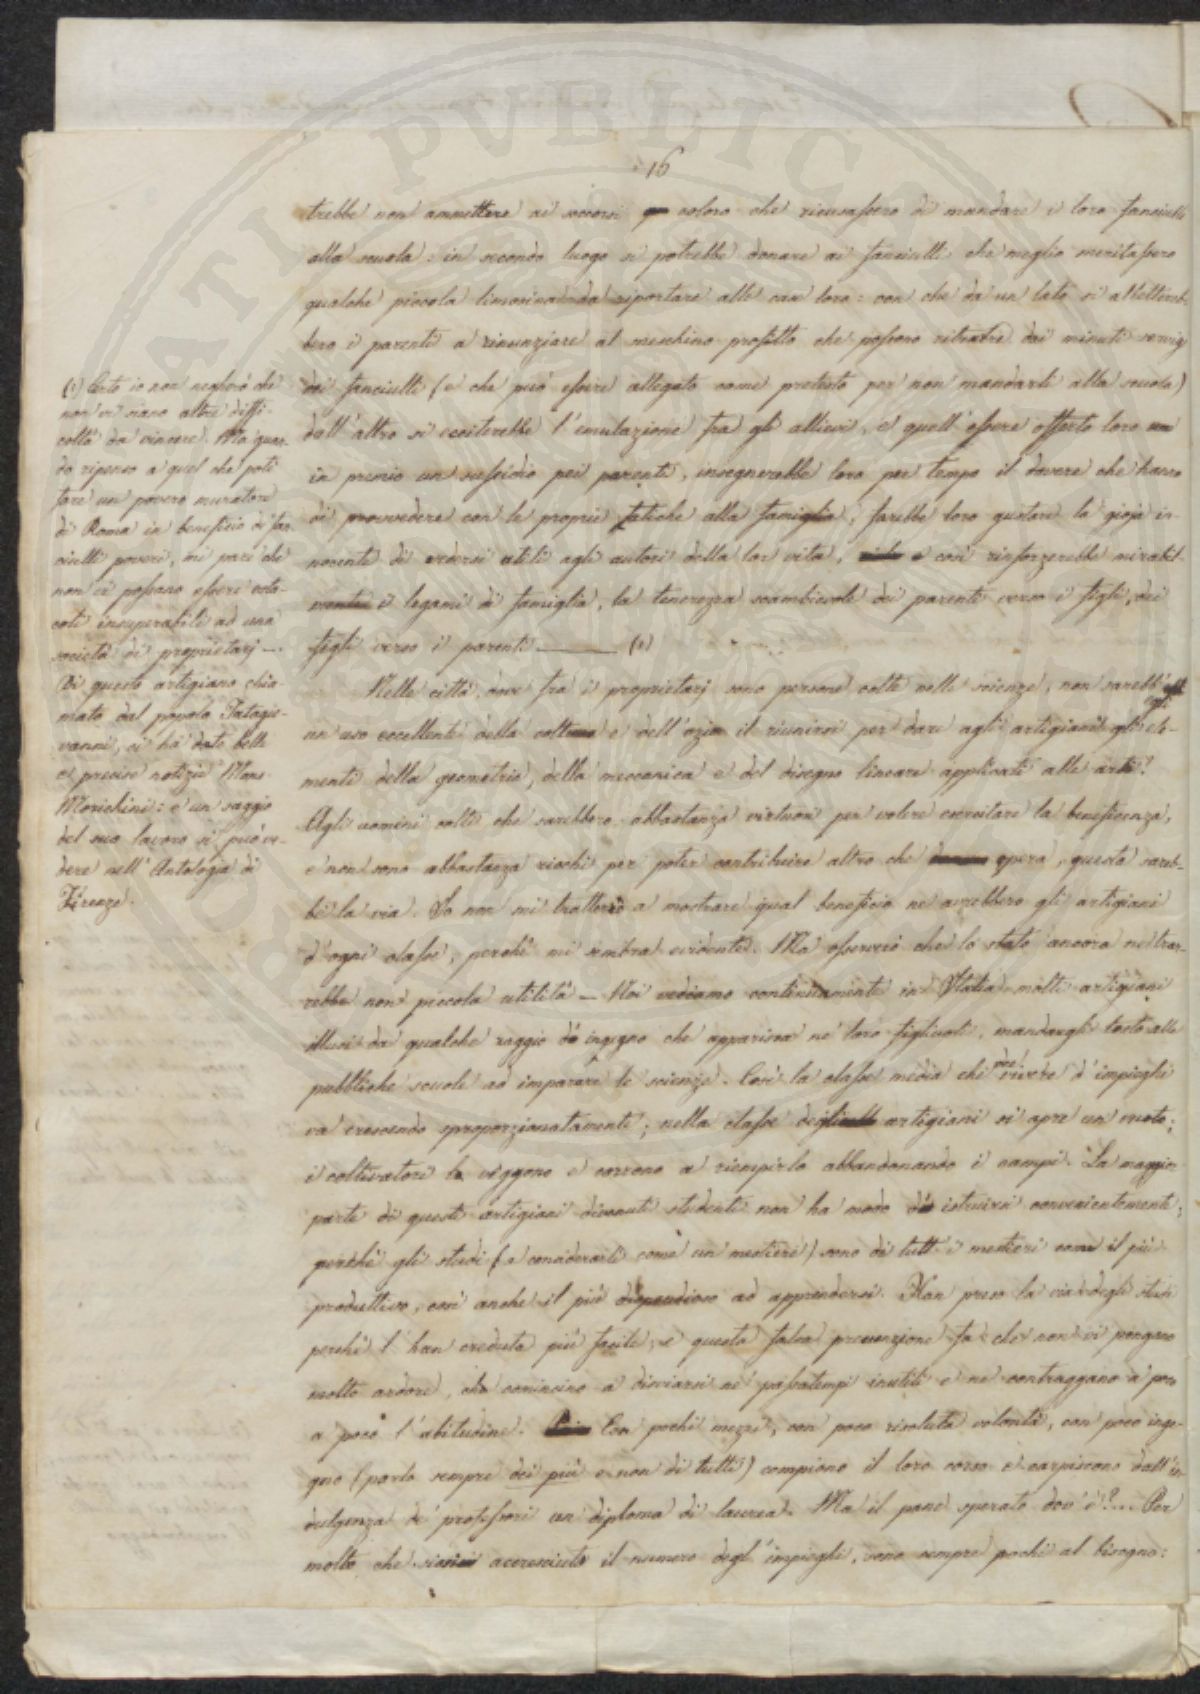 16
trebbe non ammettere ai soccorsi coloro che ricusassero di mandare i loro fanciulli
alla scuola: in secondo luogo si potrebbe donare ai fanciulli che meglio meritassero
qualche piccola limosina da riportare alle case loro: con che da un lato si allettereb-
bero i parenti a rinunziare al meschino profitto che possono ritrarre dai minuti servigj
dei fanciulli (e che può essere allegato come pretesto per non mandarli alla scuola)
dall'altro si ecciterebbe l'emulazione fra gli allievi, e quell'essere offerto loro
in premio un sussidio pei parenti, insegnerebbe loro per tempo il dovere che hanno
di provvedere con le proprie fatiche alla famiglia, farebbe loro gustare la gioja in-
nocente di vedersi utili agli autori della lor vita, e così rinforzerebbe mirabil-
mente i legami di famiglia, la tenerezza scambievole dei parenti verso i figli, dei
figli verso i parenti ——— (1)
Nelle città, dove fra i proprietarj sono persone colte nelle scienze, non sarebb'egli
un uso eccellente della coltura e dell'ozio il riunirsi per dare agli artigiani gli ele-
menti della geometria, della meccanica e del disegno lineare applicati alle arti?
Agli uomini colti che sarebbero abbastanza virtuosi per volere esercitare la beneficenza,
e non sono abbastanza ricchi per poter contribuire altro che opera, questa sareb-
be la via. Io non mi tratterrò a mostrare qual beneficio ne avrebbero gli artigiani
d'ogni classe, perchè mi sembra evidente. Ma osserverò che lo stato ancora ne trar-
rebbe non piccola utilità — Noi vediamo continuamente in Italia molti artigiani
illusi da qualche raggio d'ingegno che apparisca ne' loro figliuoli, mandargli tosto alle
pubbliche scuole ad imparare le scienze. Così la classe media che dee vivere d'impieghi
va crescendo sproporzionatamente; nella classe degli artigiani si apre un vuoto;
i coltivatori lo veggono e corrono a riempirlo abbandonando i campi. La maggior
parte di questi artigiani divenuti studenti non ha modo di istruirsi convenientemente;
perchè gli studi (a considerarli come un mestiere) sono di tutt'i mestieri come il più
produttivo, così anche il più dispendioso ad apprendersi. Han preso la via degli studi
perchè l'han creduta più facile; e questa falsa prevenzione fa che non vi pongano
molto ardore, che comincino a disviarsi ne' passatempi inutili e ne contraggano a poco
a poco l'abitudine. Con pochi mezzi, con poco risoluta volontà, con poco inge-
gno (parlo sempre dei più e non di tutti) compiono il loro corso e carpiscono dall'in-
dulgenza de' professori un diploma di laurea. Ma il pane sperato dov'è?... Per
molto che siasi accresciuto il numero degl'impieghi, sono sempre pochi al bisogno:
(1) Certo io non negherò che
non vi siano altre diffi-
coltà da vincere. Ma quan-
do ripenso a quel che potè
fare un povero muratore
di Roma in beneficio di fan-
ciulli poveri, mi pare che
non vi possano essere osta-
coli insuperabili ad una
società di proprietarj —.
Di questo artigiano chia-
mato dal popolo Tatagio-
vanni, ci ha date belle
e precise notizie Mons.
Morichini: e un saggio
del suo lavoro si può ve-
dere nell'Antologia di
Firenze.